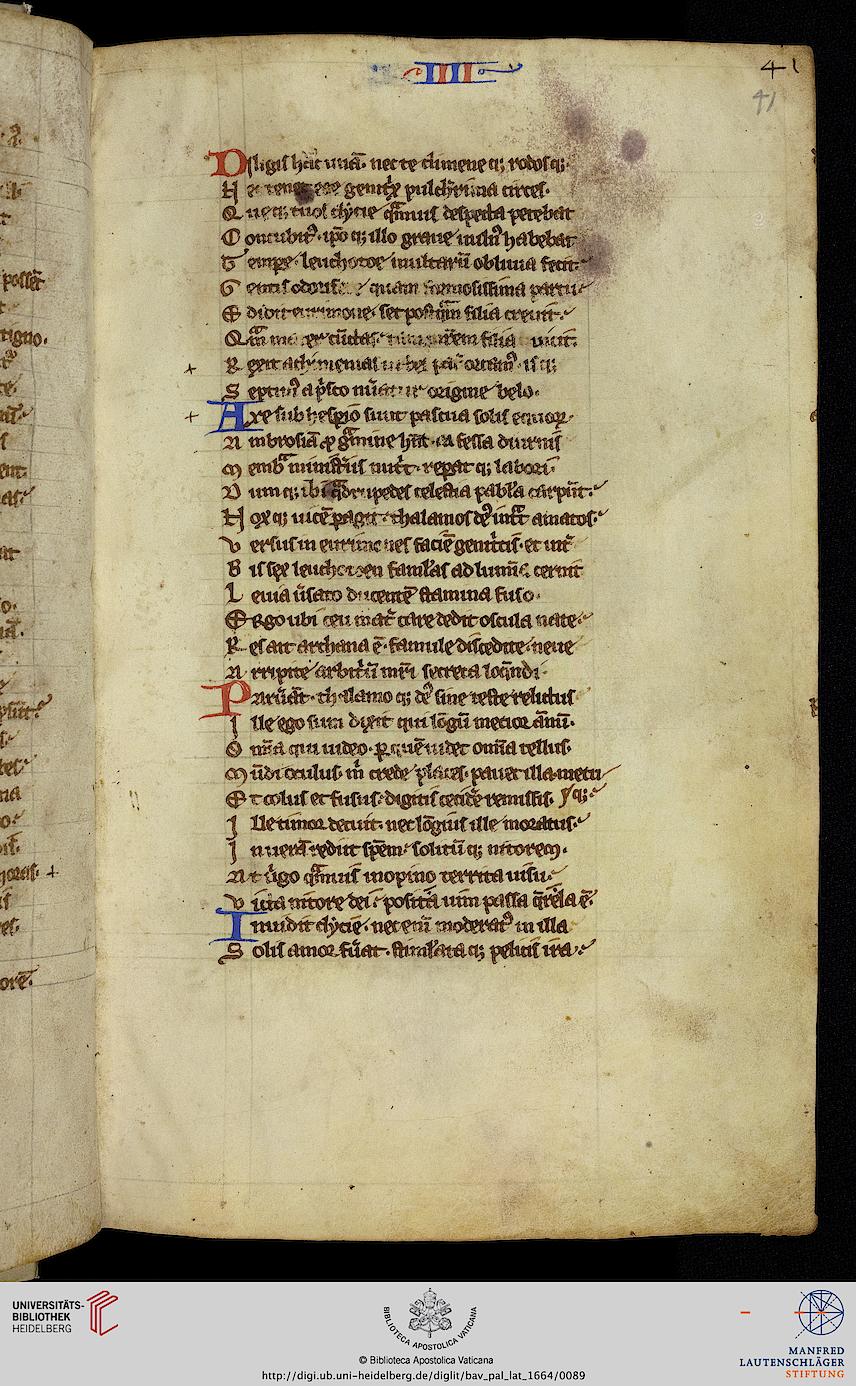 IIII
41
41
Diligis hāc unā. nec te climene q; rodos q;
H ec tenet eee genitͥx pulch̄rima circes.
Q ue q; tuos clycie q̄muis despecta petebat
C oncubitꝰ. ip̄o q; illo graue uuln̄ habebat
T empe. leuchotoe multarū obliuia fecit.
G entis odorif quam formosissima partu
E didit eurimone. set postq̄m filia creuit.
Q ām mater cūctas. filia uicit.
R exit achimenias pat̄ orcamꝰ. is q;
S eptimꝰ a p̄sco origine belo.
Axe sub hesp̄io sunt pascua solis equoꝝ.
A mbrosiā ꝓ ḡmine hn̄t. ea fessa diurnis
M emb̄ minist̄iis nut̄t. repat q; labori.
D um q; ibi q̄drupedes celestia pabl̄a carpūt.
H ox q; uicē pagit. thalamos dꝰ int̄t amatos.
V ersus in eurimones faciē genit̄cis. et int̄
B is sex leuchotoen faml̄as ad lumīa cernit
L euia ūsato ducentē stamina fuso.
E rgo ubi ceu mat̄ care dedit oscula nate.
R es ait archana ē. famule discedite. neue
A rripite arbit̄ū mr̄i secreta loq̄ndi.
Paruāt. thalamo q; dꝰ sine teste relictus
I lle ego sum dixit qui lōgū metior ānū.
O mīa qui uideo. ꝑ quē uidet omīa tellus.
M ūdi oculus. m̄ crede places. pauet illa. metu
E t colus et fusus. digitis cecid̄e remissis. q;
I lle timor decuit. nec lōgius ille moratus.
I n uerā rediit spēm. solitū q; nitorem.
A t ūgo q̄muis inopino territa uisu.
V icta nitore dei. posita uim passa q̄rela ē.
Inuidit clycie. nec eni moderatꝰ in illa
S olis amor fūat. stimlata q; pelicis ira.
UNIVERSITÄTS-
BIBLIOTHEK
HEIDELBERG
BIBLIOTECA APOSTOLICA VATICANA
© Biblioteca Apostolica Vaticana
http://digi.ub.uni-heidelberg.de/diglit/bav_pal_lat_1664/0089
MANFRED
LAUTENSCHLÄGER
STIFTUNG